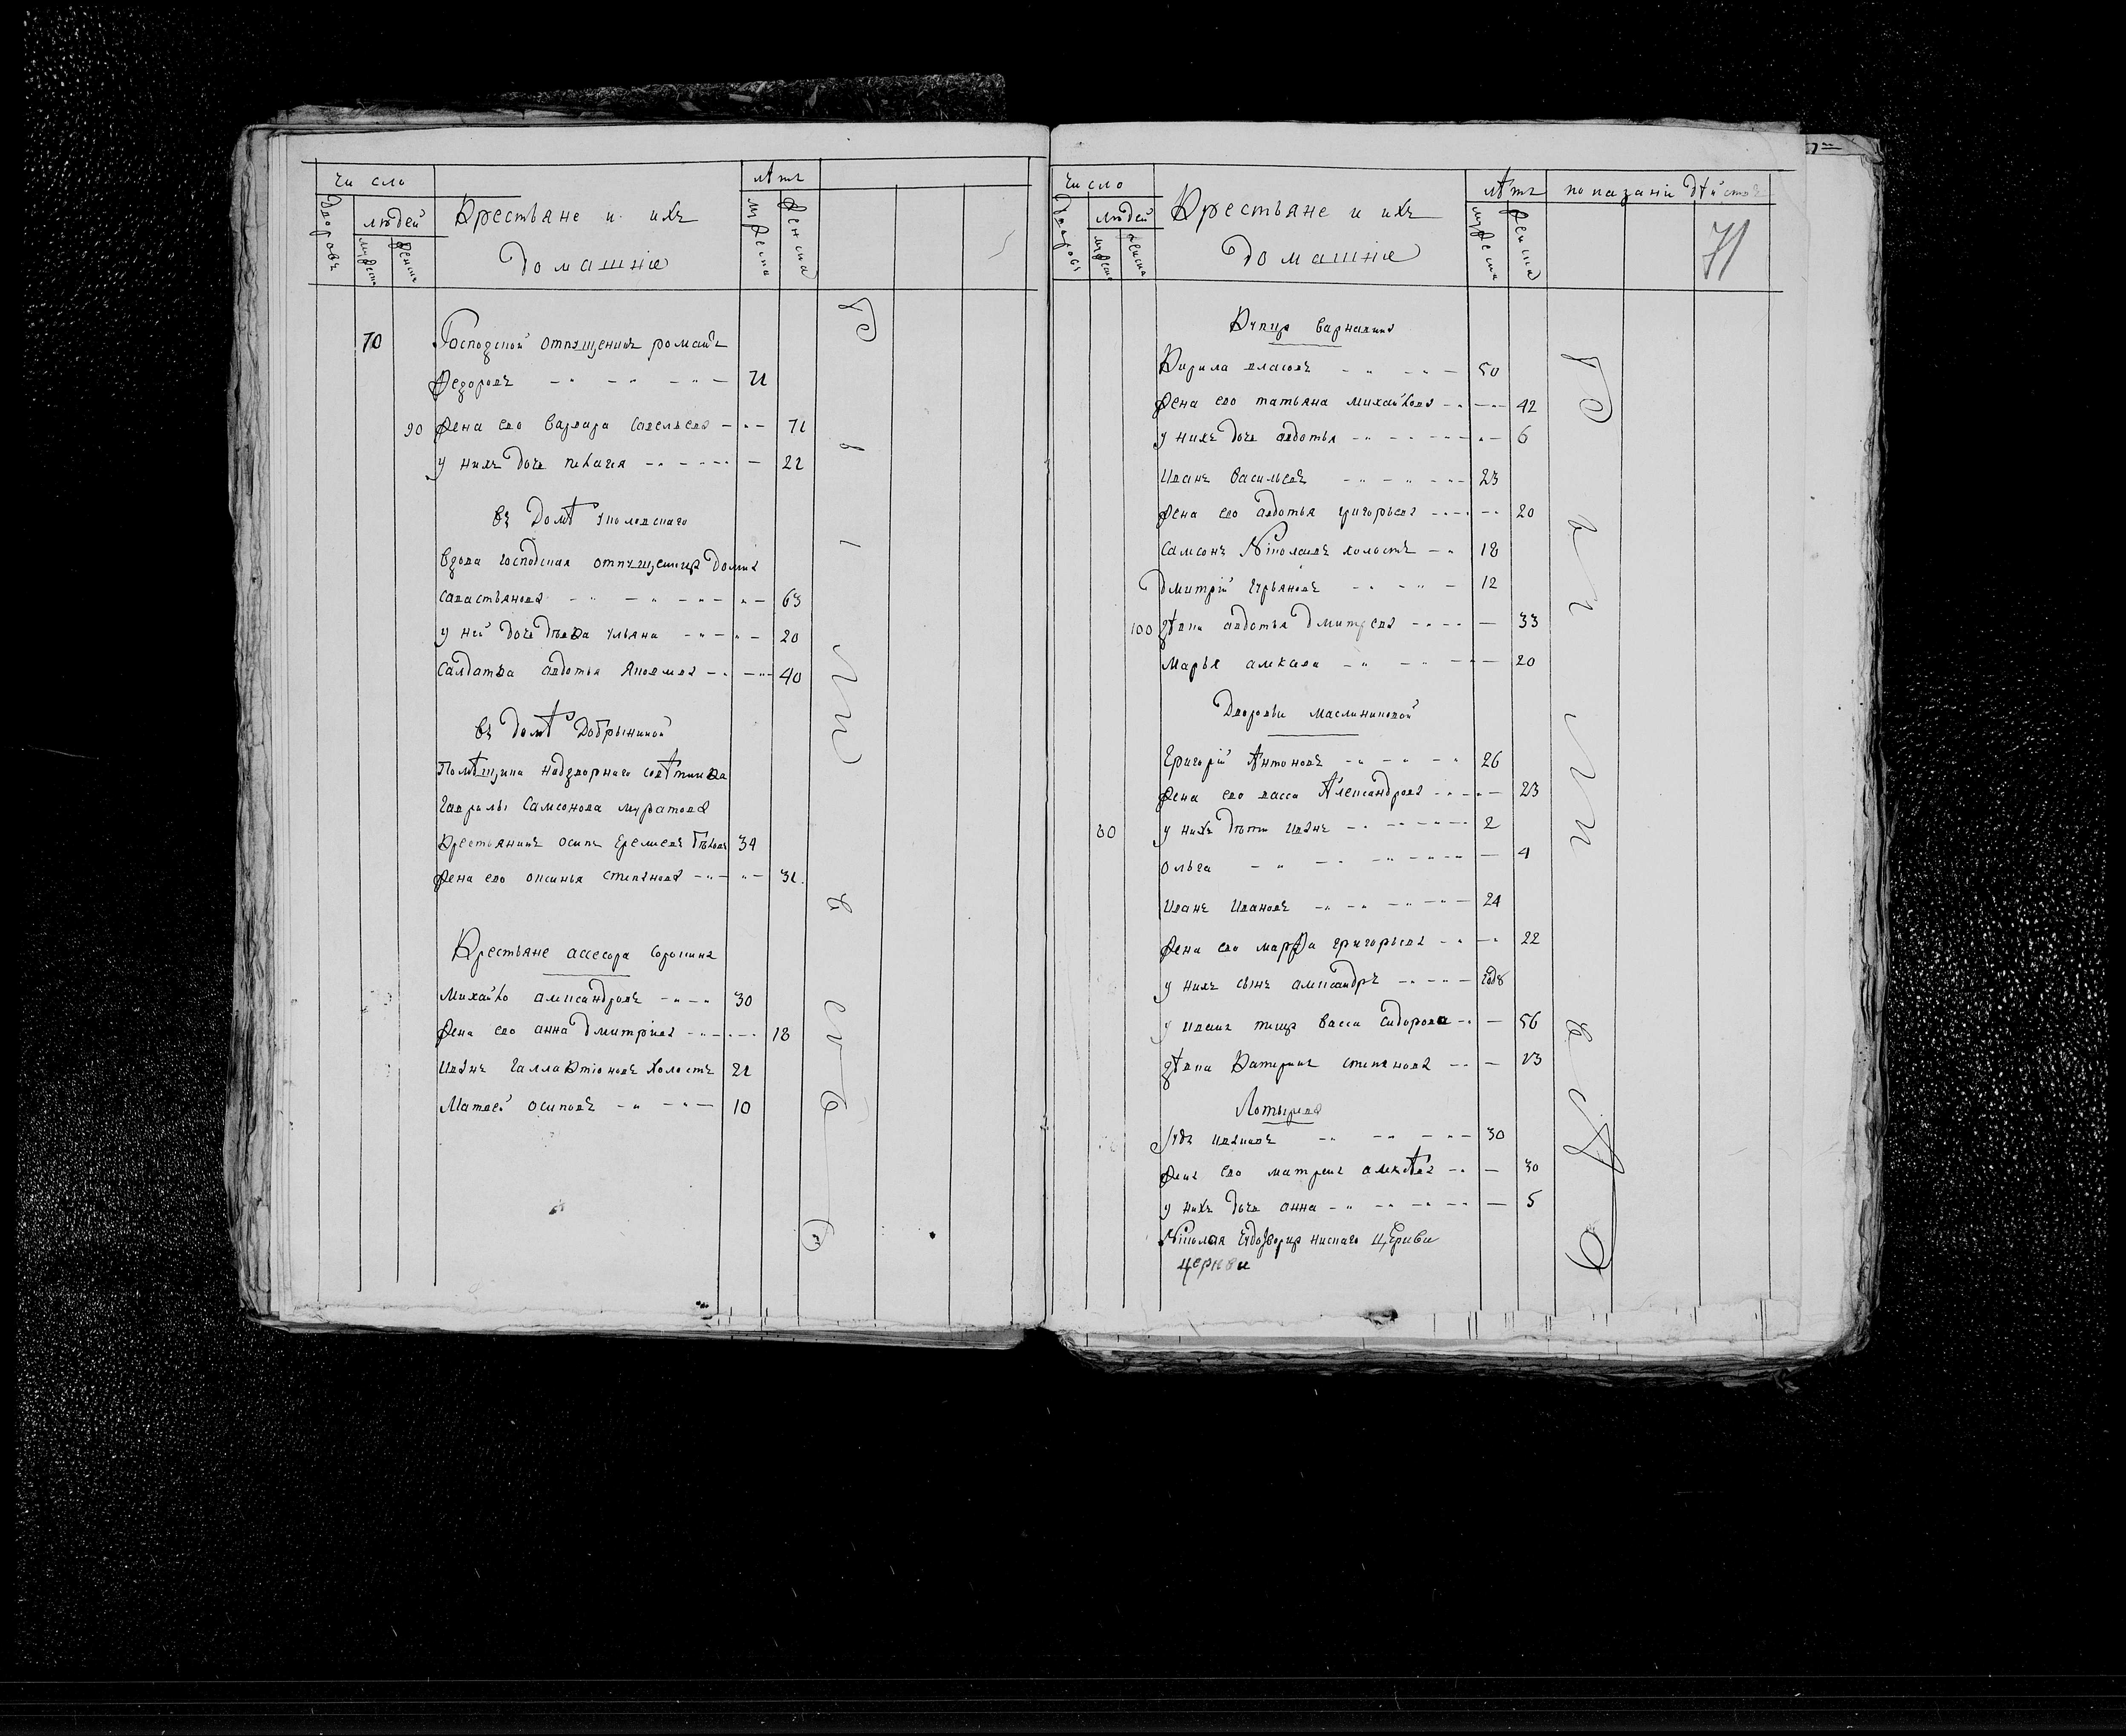 число
лѣтъ
дворовъ
людей
мужеска
женска
Крестьяне и ихъ
домашніе
мужеска
женска
70 Господской отпущеникъ романъ
Федоровъ 71
90 жена ево варвара савельева 71
у нихъ дочь пелагея 22
въ домѣ
вдова господская отпущеница домна
савастьянова 63
у ней дочь девка ульяна 20
салдатка авдотья 40
въ домѣ Добрыниной
Помѣщика надворнаго совѣтника
гаврилы самсонова муратова
крестьянинъ осипъ еремеевъ 34
жена ево оксинья степанова 31
Крестьяне ассесора сорокина
михайло александровъ 30
жена ево анна дмитріева 18
иванъ галактіоновъ холостъ 21
матвей осиповъ 10
число
лѣтъ
показаніи дѣйство
дворовъ
людей
мужеска
женска
Крестьяне и ихъ
домашніе
мужеска
женска
71
Купца варнавина
Кирила власовъ 50
жена ево татьяна михайлова 42
у нихъ дочь авдотья 6
иванъ васильевъ 23
жена ево авдотья григорьева 20
самсонъ Николаевъ холостъ 18
дмитрій гурьяновъ 12
100 дѣвка авдотья дмитрева 33
марья 20
Дворовыи масленниковой
Григорій Антоновъ 26
жена ево васса Александрова 23
80 у нихъ дѣти иванъ 2
ольга 4
иванъ ивановъ 24
жена ево марфа григорьева 22
у нихъ сынъ александръ году
у ивана теща васса сидорова 56
дѣвка катерина степанова 23
Лотырева
иванов 30
жена ево матрена алексѣева 30
у нихъ дочь анна 5
Николая Чудотворца церкви
церкви